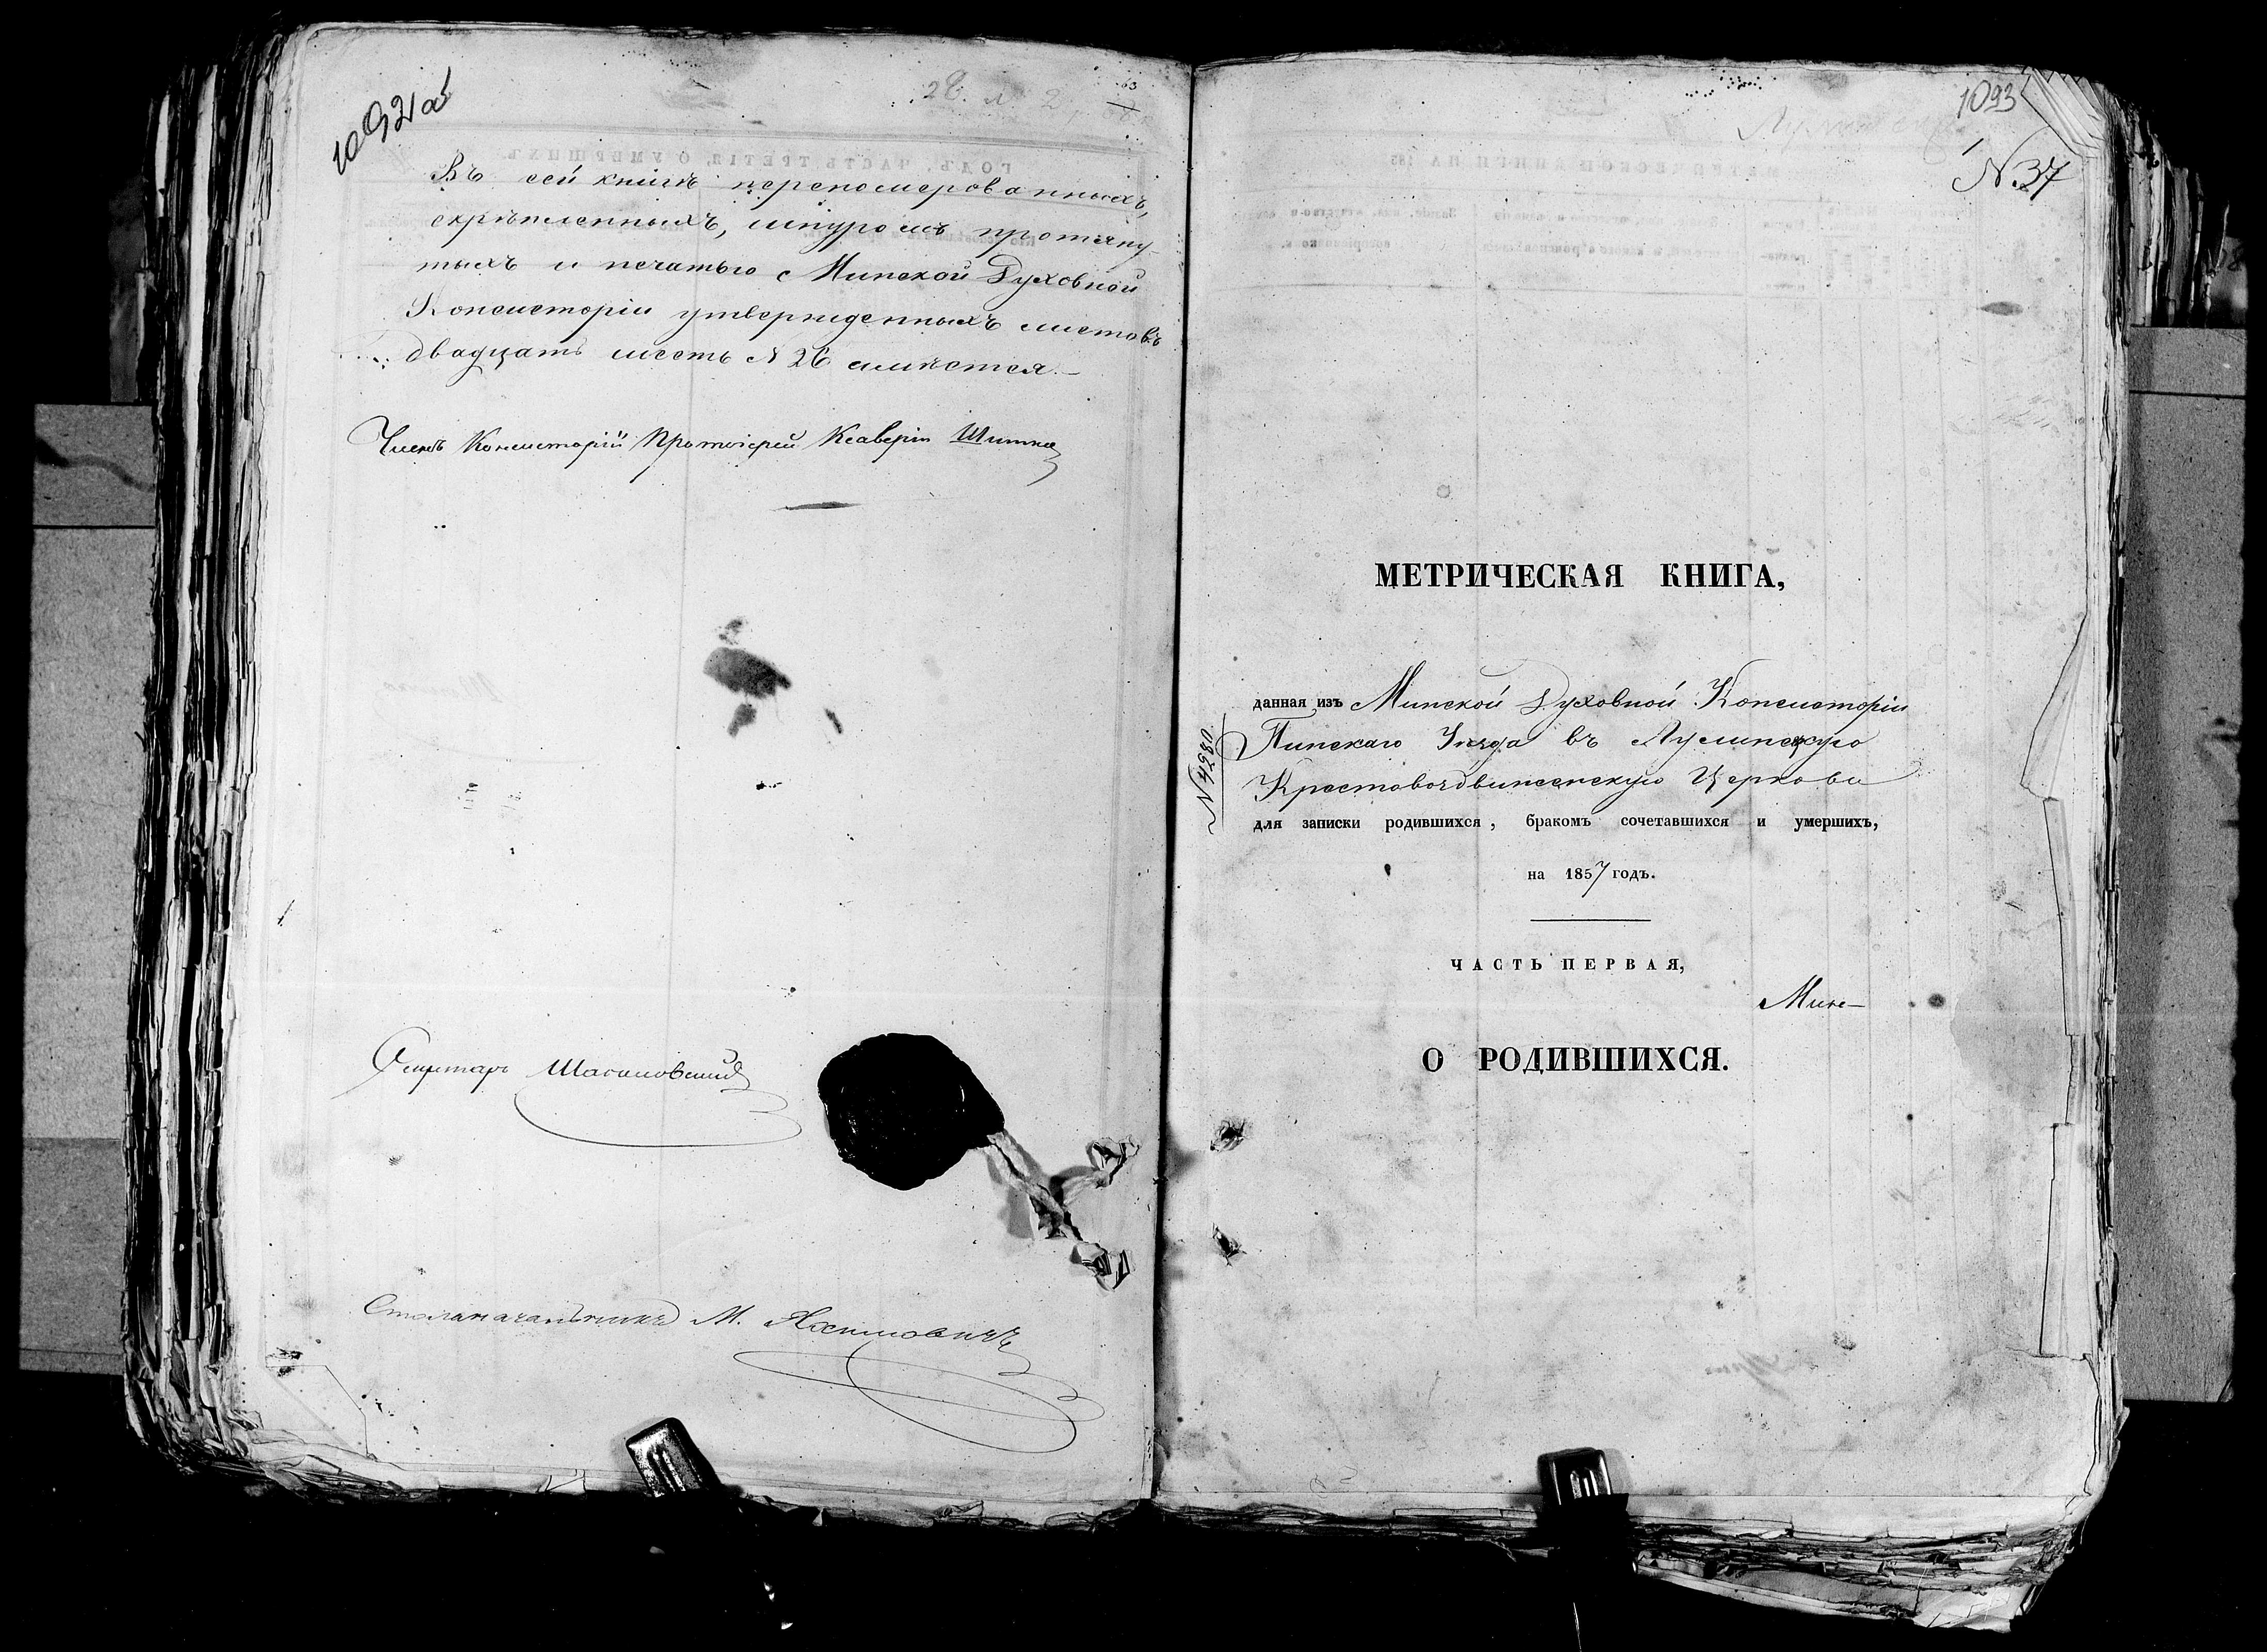 1092 об
Въ сей книгѣ перепомерованныхъ,
скрѣпленныхъ, шнуромъ протяну-
тыхъ и печатью Минской Духовной
Консисторіи утвержденныхъ листовъ
двадцать шесть № 26 имѣется.
Членъ Консисторіи Протоіерей Ксаверій
Секретарь
Столоначальникъ М.
1093
1
№ 37
МЕТРИЧЕСКАЯ КНИГА,
данная изъ Минской Духовной Консисторіи
Пинскаго Уѣзда въ
Крестовоздвиженскую Церковь
№ 4280
для записки родившихся, бракомъ сочетавшихся и умершихъ,
на 1857 годъ.
ЧАСТЬ ПЕРВАЯ,
Минс-
О РОДИВШИХСЯ.